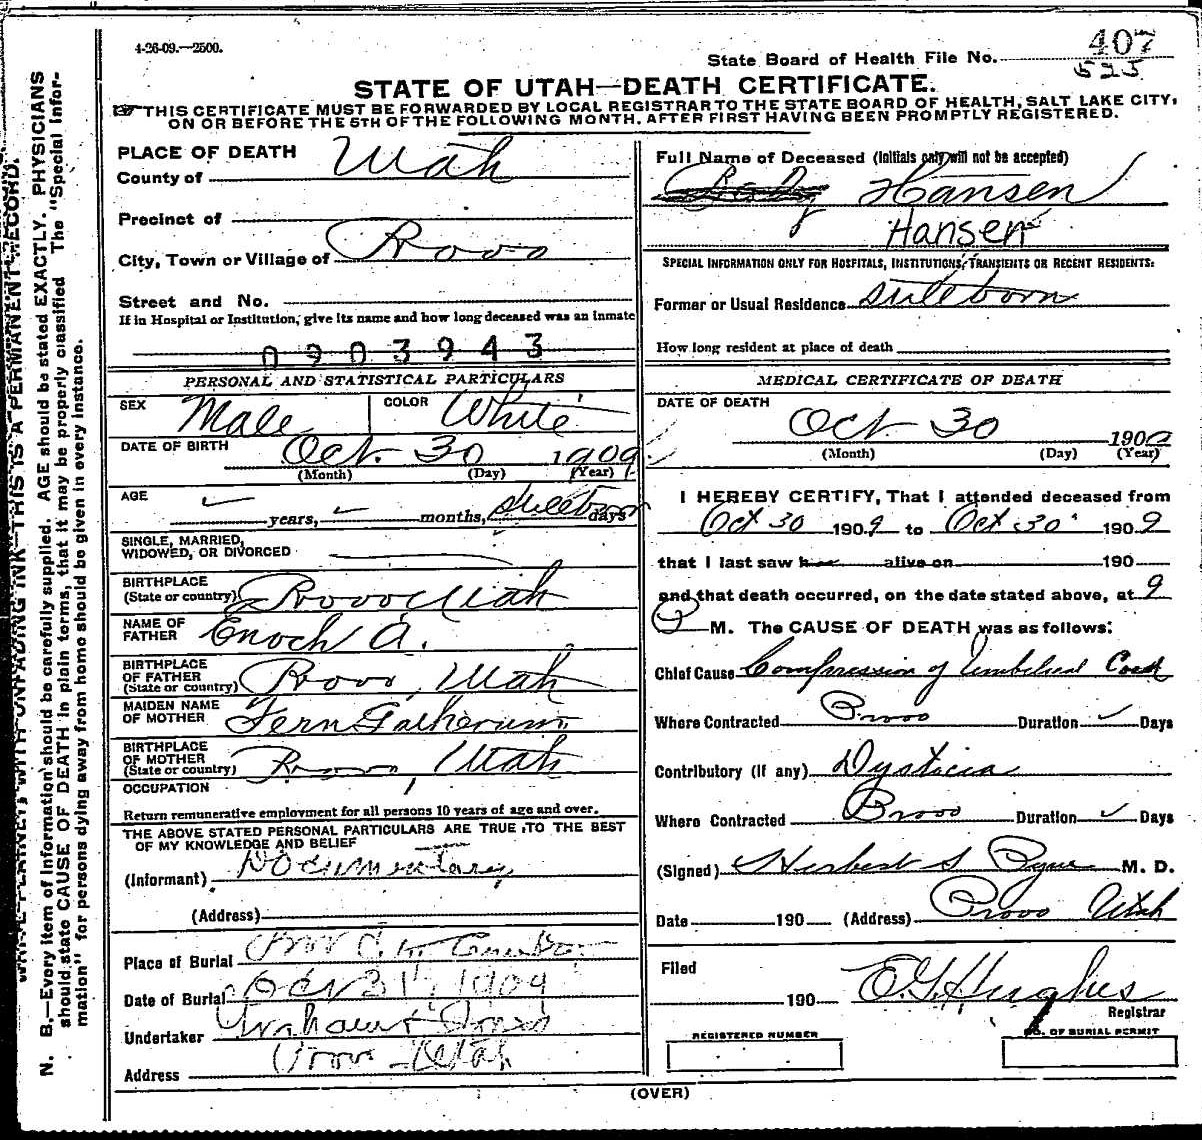 4-26-09.—2500.
State Board of Health File No. 407
525
STATE OF UTAH—DEATH CERTIFICATE.
THIS CERTIFICATE MUST BE FORWARDED BY LOCAL REGISTRAR TO THE STATE BOARD OF HEALTH, SALT LAKE CITY,
ON OR BEFORE THE 5TH OF THE FOLLOWING MONTH, AFTER FIRST HAVING BEEN PROMPTLY REGISTERED.
N. B.—Every item of information should be carefully supplied. AGE should be stated EXACTLY. PHYSICIANS
should state CAUSE OF DEATH in plain terms, that it may be properly classified. The "Special Infor-
mation" for persons dying away from home should be given in every instance.
WRITE PLAINLY, WITH UNFADING INK—THIS IS A PERMANENT RECORD.
PLACE OF DEATH
County of Utah
Precinct of
City, Town or Village of Provo
Street and No.
If in Hospital or Institution, give its name and how long deceased was an inmate
0903943
PERSONAL AND STATISTICAL PARTICULARS
SEX Male COLOR White
DATE OF BIRTH Oct. 30 1909
(Month) (Day) (Year)
AGE
years, months, stillborn days
SINGLE, MARRIED,
WIDOWED, OR DIVORCED
BIRTHPLACE
(State or country) Provo Utah
NAME OF
FATHER Enoch A.
BIRTHPLACE
OF FATHER
(State or country) Provo, Utah
MAIDEN NAME
OF MOTHER Fern
BIRTHPLACE
OF MOTHER
(State or country) Provo, Utah
OCCUPATION
Return remunerative employment for all persons 10 years of age and over.
THE ABOVE STATED PERSONAL PARTICULARS ARE TRUE TO THE BEST
OF MY KNOWLEDGE AND BELIEF
(Informant) Documentary
(Address)
Place of Burial
Date of Burial Oct 31 1909
Undertaker Graham & Jones
Address Provo Utah
Full Name of Deceased (Initials only will not be accepted)
Baby Hansen
Hansen
SPECIAL INFORMATION ONLY FOR HOSPITALS, INSTITUTIONS, TRANSIENTS OR RECENT RESIDENTS:
Former or Usual Residence stillborn
How long resident at place of death
MEDICAL CERTIFICATE OF DEATH
DATE OF DEATH
Oct 30 1909
(Month) (Day) (Year)
I HEREBY CERTIFY, That I attended deceased from
Oct 30 1909 to Oct 30 1909
that I last saw h alive on 190
and that death occurred, on the date stated above, at 9
P M. The CAUSE OF DEATH was as follows:
Chief Cause Compression of Umbilical Cord
Where Contracted Provo Duration Days
Contributory (if any) Dystocia
Where Contracted Provo Duration Days
(Signed) Herbert S. Pyne M. D.
Date 190 (Address) Provo Utah
Filed
190 E.G. Hughes
Registrar
REGISTERED NUMBER
NO. OF BURIAL PERMIT
(OVER)